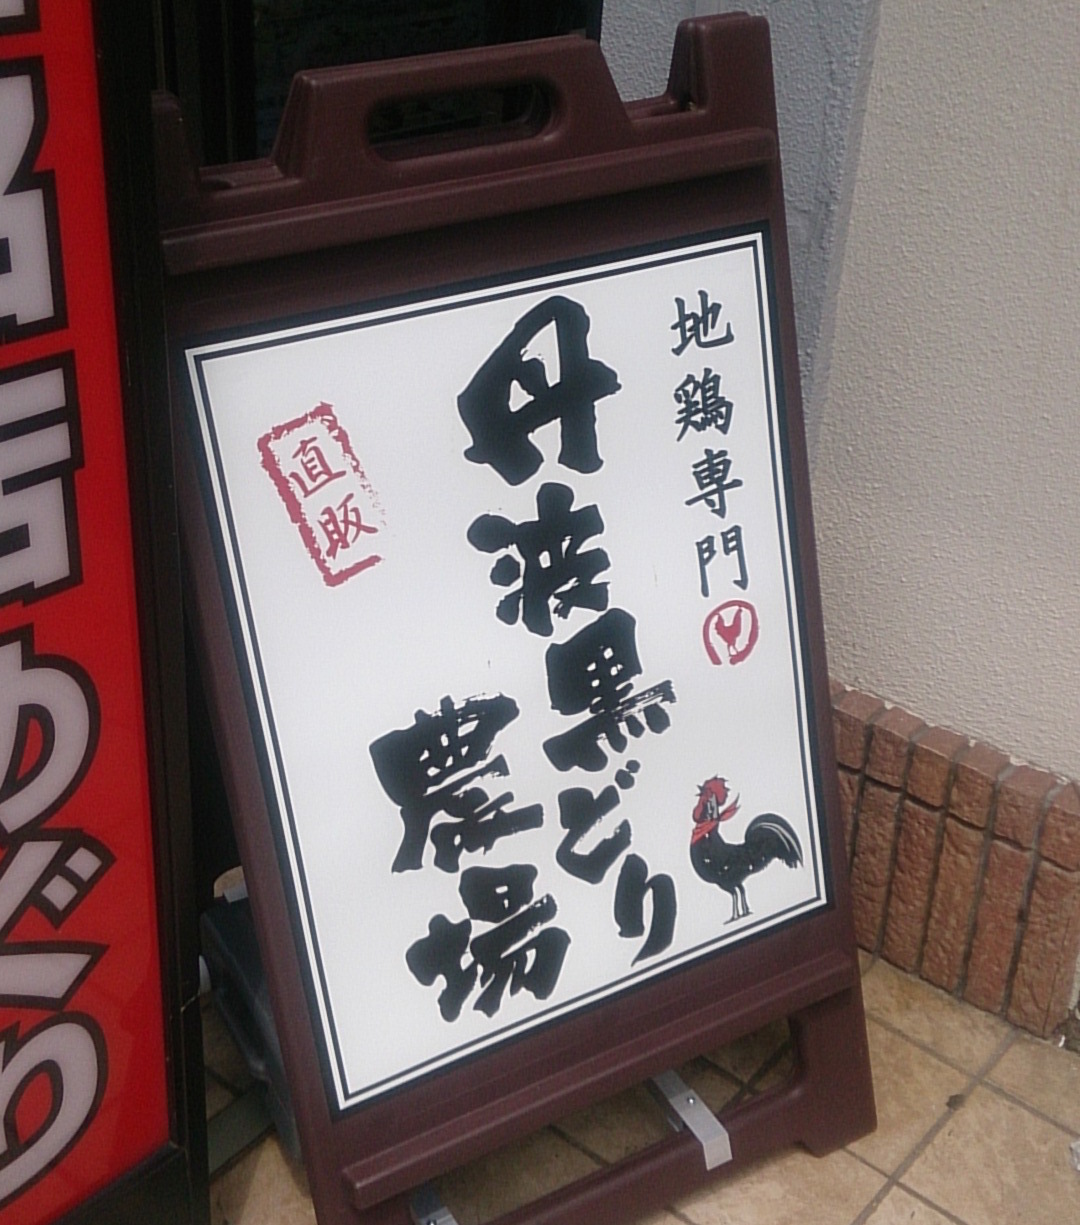 地鶏専門
丹波黒どり
農場
直販